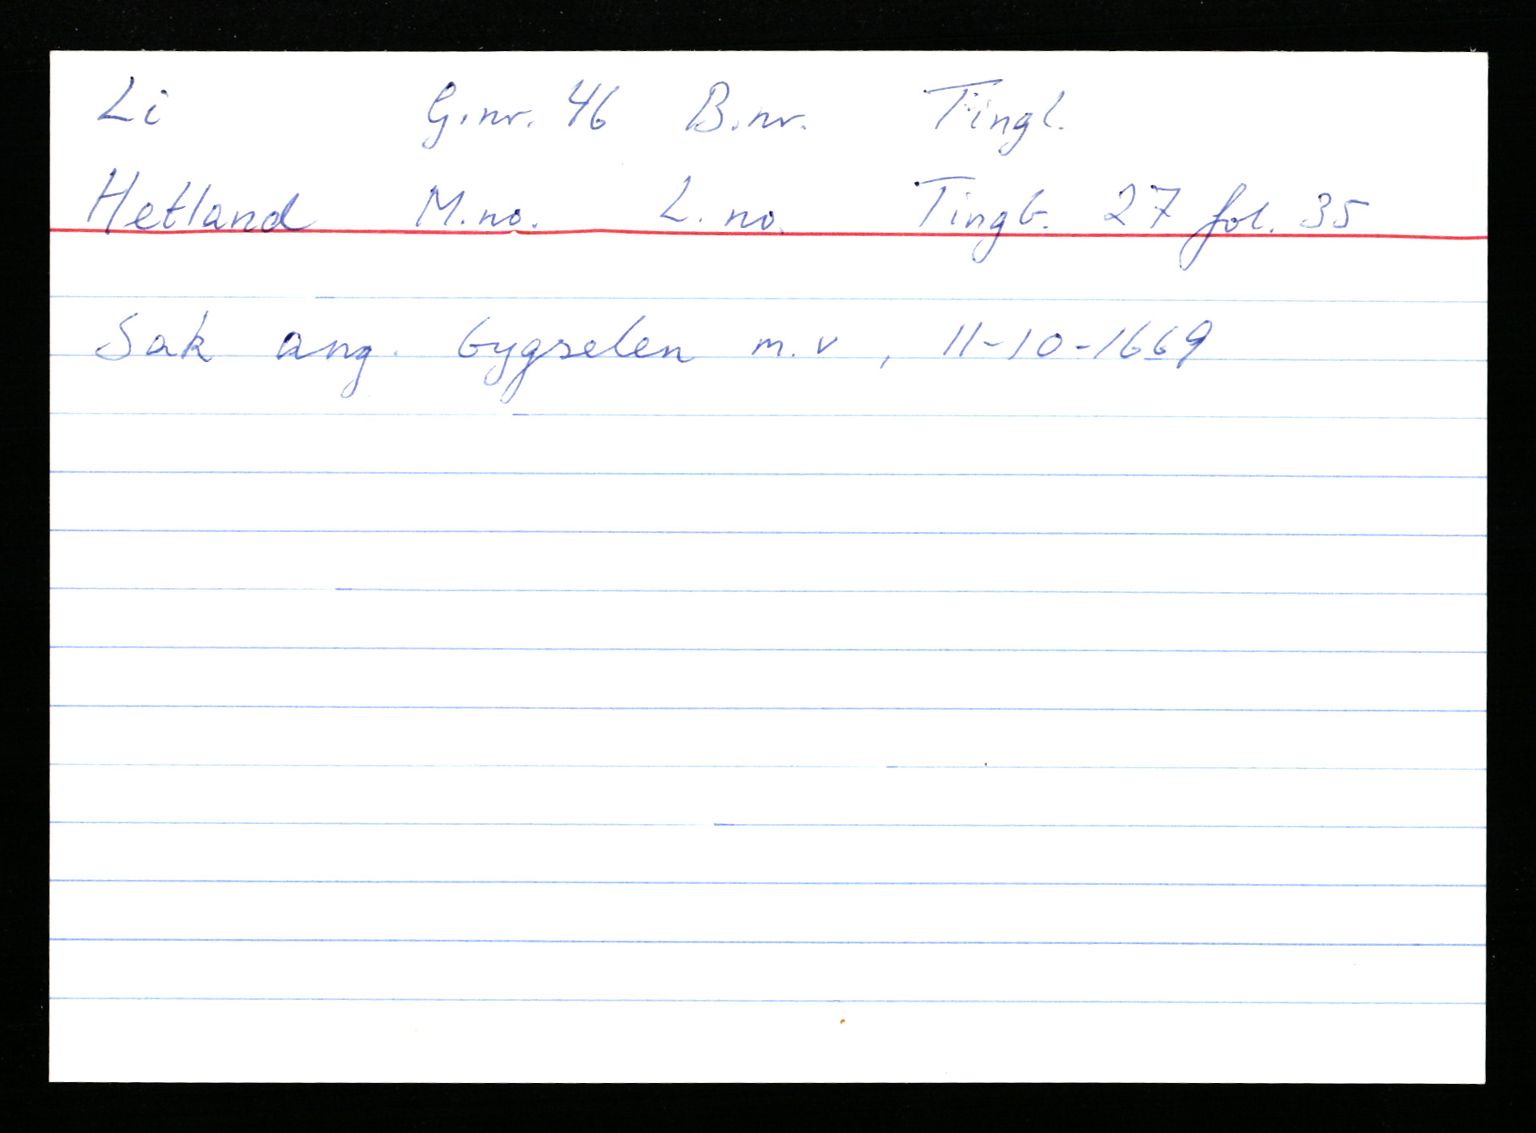 Li G.nr. 46 B.nr. Tingl.
Hetland M.no. L.no. Tingb. 27 fol. 35
Sak ang. bygselen m.v, 11-10-1669